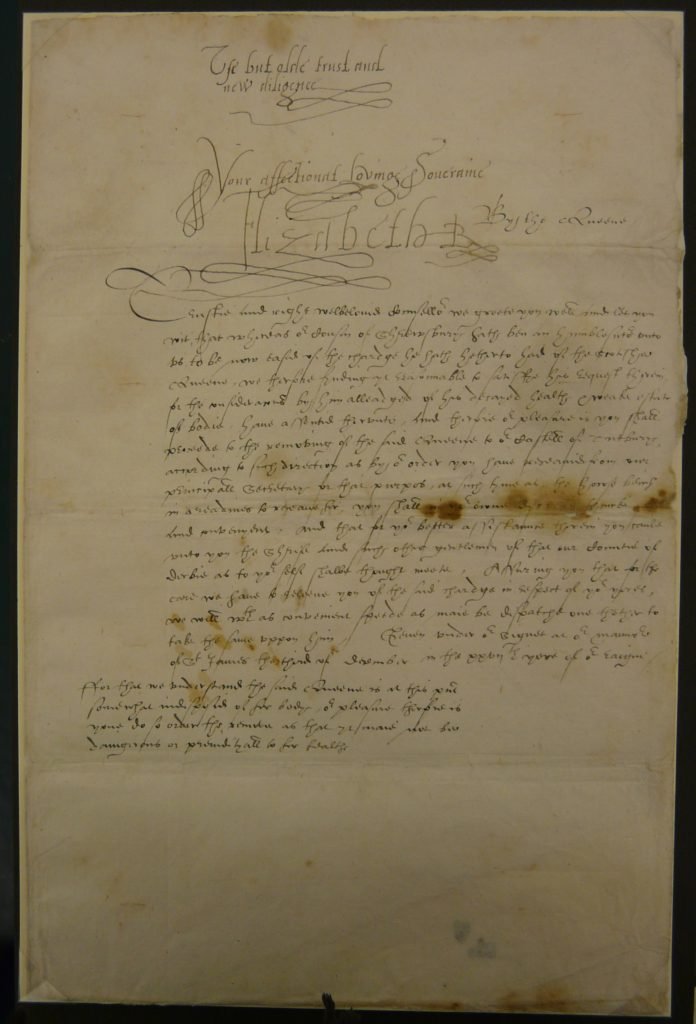 Use but olde trust and
new diligence
Your affectionat loving Soveraine
Elizabeth R
By the Queene
Trustie and right welbeloved Counsellor we greete you well and let you
wit, that whereas or Cousin of Shrewsbury hath ben an humble sutor unto
us to be now eased of the chardge he hath hetherto had of the Scotishe
Queene, we therfore finding it reasonable to satisfie his request therein
for the consideracons by him alleadged of his decayed health
of bodie, have assented therunto, And therfore or pleasure is you shall
proceade to the removing of the said Queene to or Castell of Tutbury,
according to such direction as by or order you have receaved from our
principall Secretary for that purpos, at such time as the howse being
in areadines to receave her, you shall
and convenient, And that for yor better assistance therein you calle
unto you the Shrief and such other gentlemen of that our Countie of
Derbie as to yor self shalbe thought meete, Assuring you that for the
care we have to releeve you of the said chardge in respect of yor yeres,
we will wth as convenient speede as maie be dispatche one thether to
take the same uppon him, Geven under or Signet at or mannor
of St James the thurd of December in the xxviith yere of or raigne
For that we understand the said Queene is at this pnt
somewhat indisposed of her body, or pleasure therfore is
you do so order the remove as that it maie not be
daungerous or preiudiciall to her health